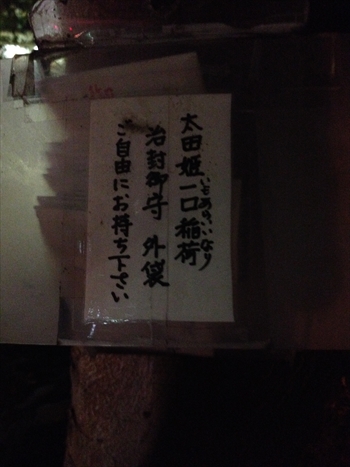 太田姫一口稲荷
いもあらいいなり
治封御守 外袋
ご自由にお持ち下さい